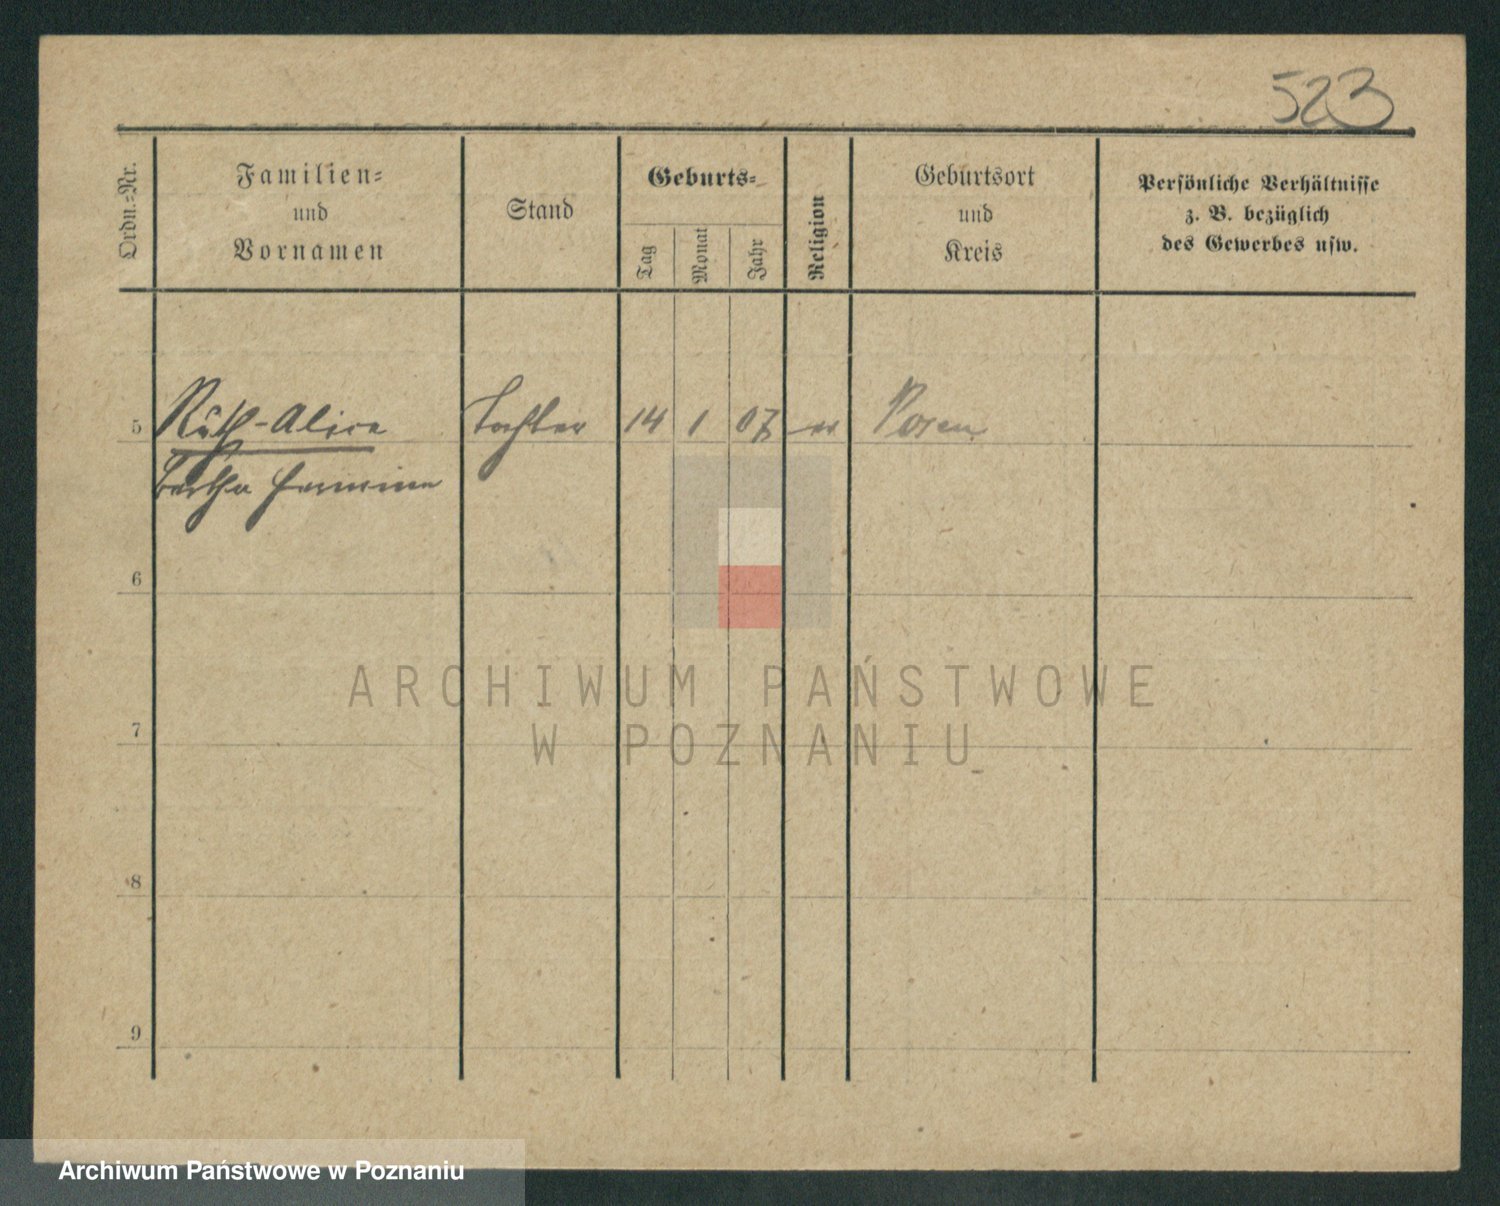 523
Ordn.-Nr.
Familien-
und
Vornamen
Stand
Geburts-
Tag
Monat
Jahr
Religion
Geburtsort
und
Kreis
Persönliche Verhältnisse
z. B. bezüglich
des Gewerbes usw.
5 Ruth-Alice Tochter 14 1 07 Posen
Bertha Hermine
6
7
8
9
ARCHIWUM PAŃSTWOWE
W POZNANIU
Archiwum Państwowe w Poznaniu